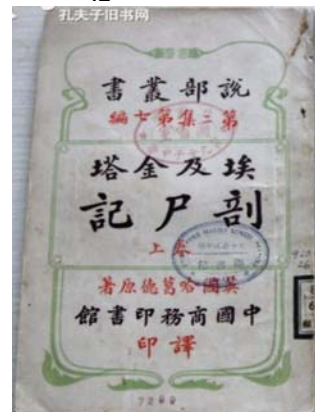 孔夫子旧书网
說部叢書
第二集第七編
埃及金塔
剖尸記
卷上
英國哈葛德原著
中國商務印書館
譯印